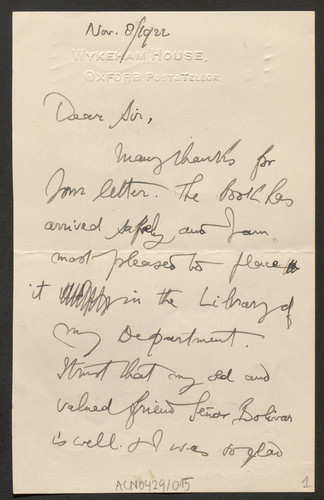 Nov. 8/1922
WYKEHAM HOUSE,
OXFORD. POST & TELEGR
Dear Sir,
Many thanks for
your letter. The book has
arrived safely and I am
most pleased to place
it in the Library of
my Department.
I trust that my old and
valued friend Señor Bolivar
is well. I was so glad
ACN0429/015
1